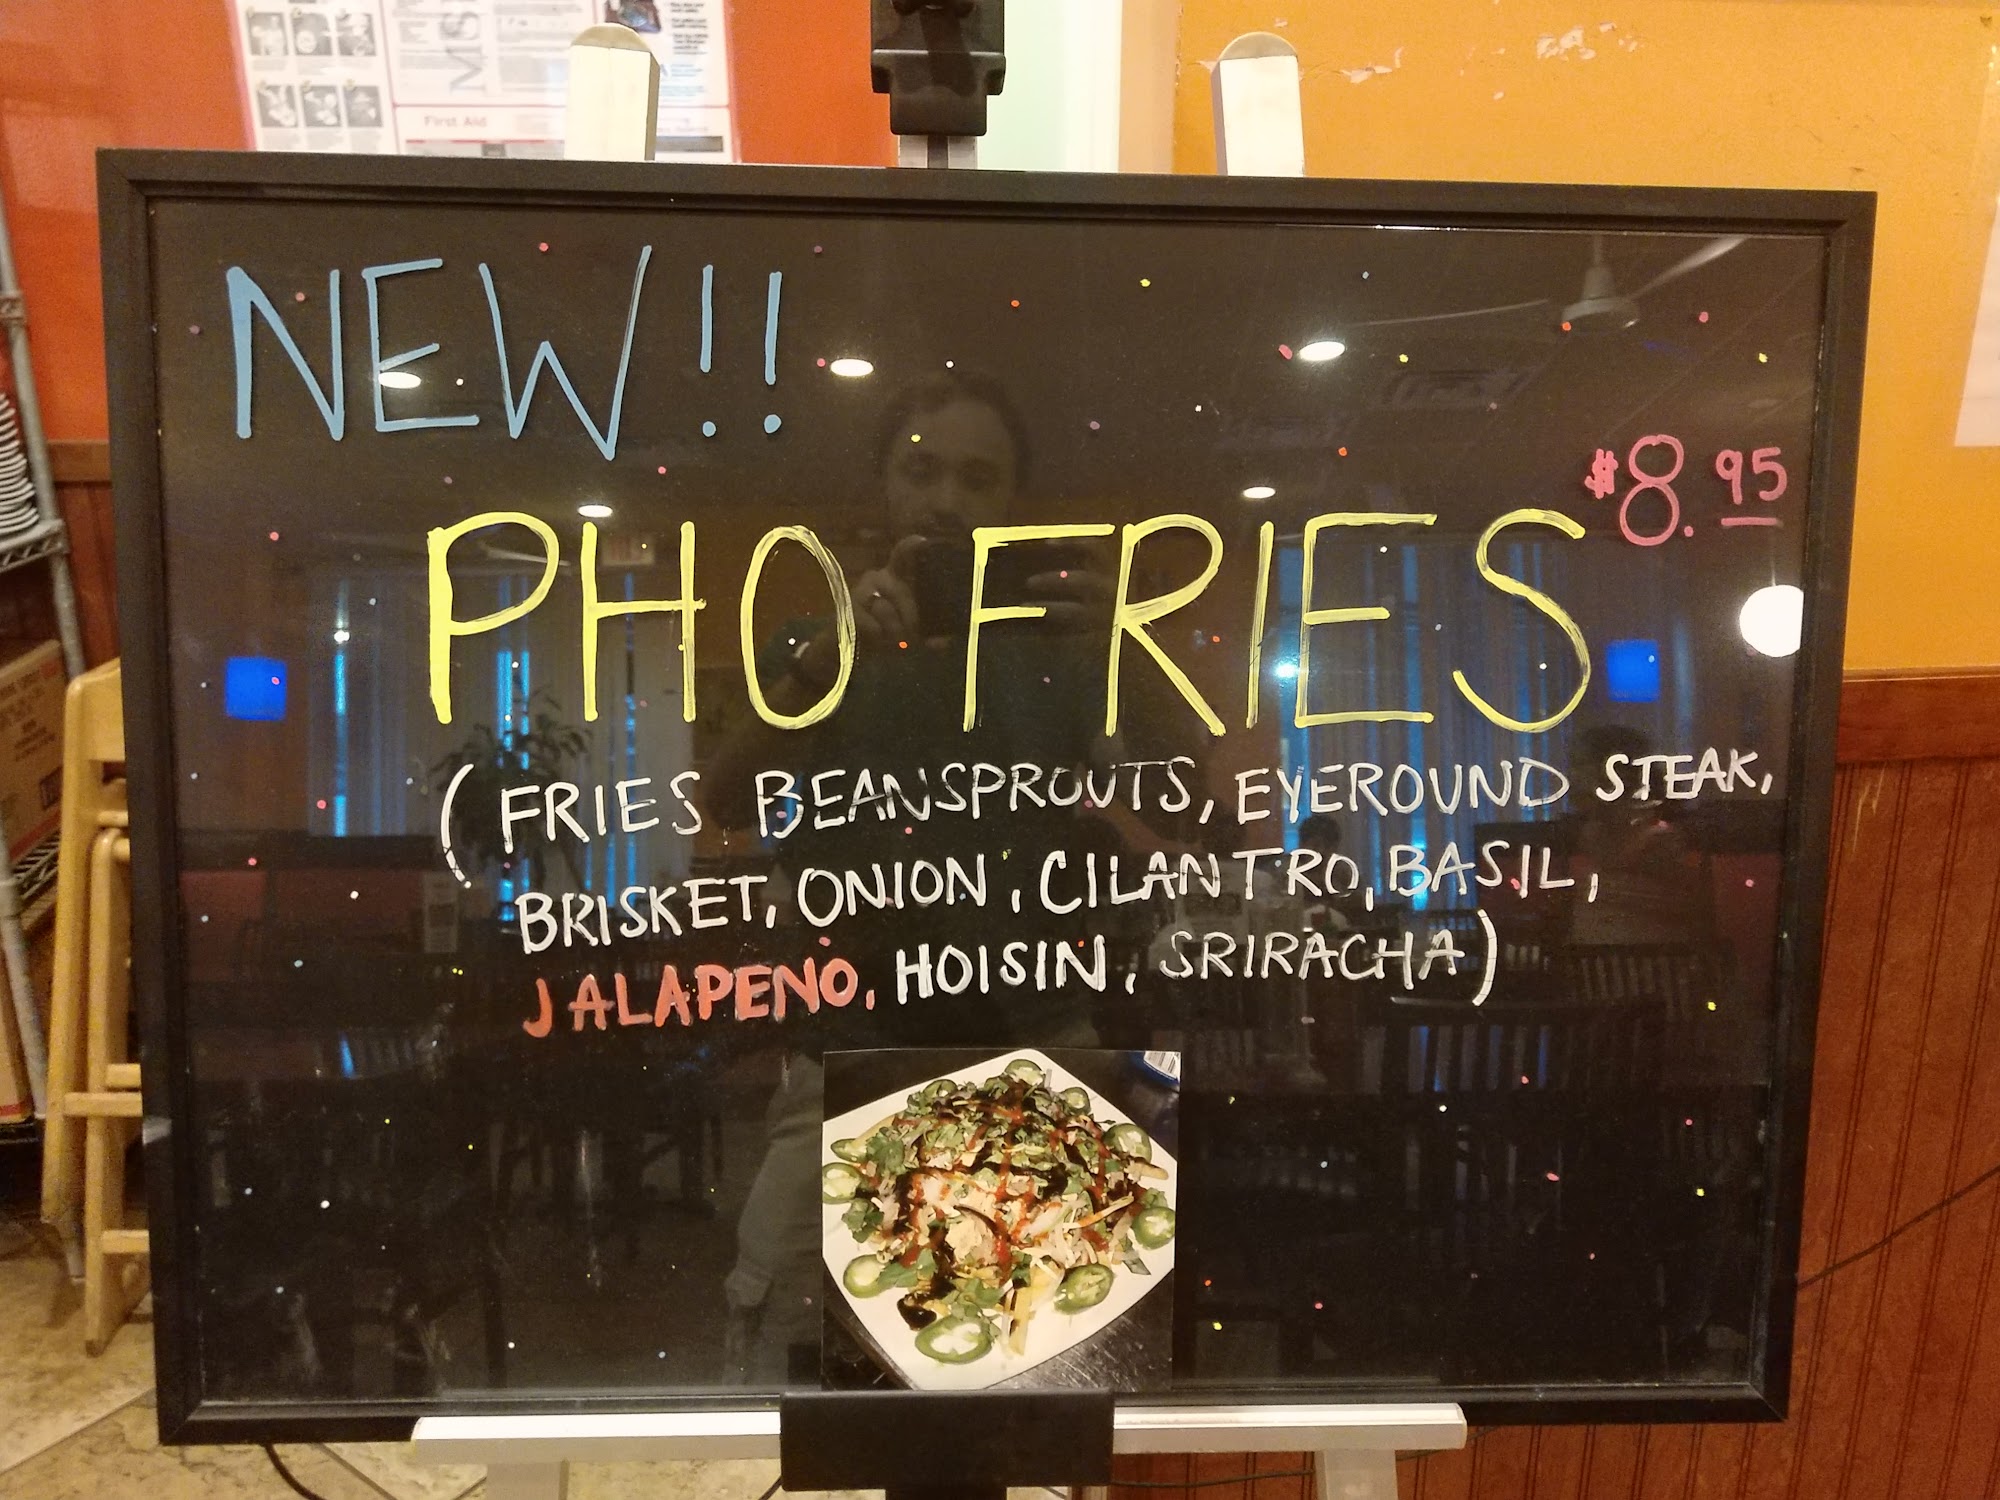 First Aid
NEW!!
$8.95
PHO FRIES
(FRIES BEANSPROUTS, EYEROUND STEAK,
BRISKET, ONION, CILANTRO, BASIL,
JALAPENO, HOISIN, SRIRACHA)